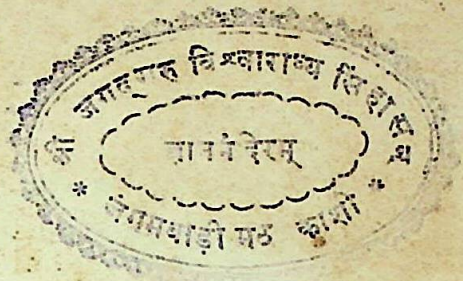 श्री जगद्गुरु विश्वाराध्य सिंहासनस्थ
ज्ञानमंदिरम्
* जंगमवाड़ी मठ काशी *